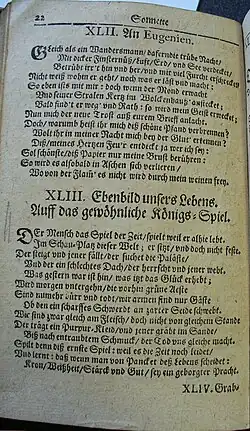 22 Sonnette
XLII. An Eugenien.
GLeich als ein Wandersmann/ dafern die trübe Nacht/
Mit dicker Finsternüß/ Luft/ Erd/ und See verdecket/
Betrübt irr't hin und her/ und mit viel Furcht erschrecket
Nicht weiß wohin er geht/ noch was er läst und macht:
So eben ists mit mir: doch wenn der Mond erwacht
Und seiner Stralen Kertz im Wolckenhauß' anstecket;
Bald find't er weg' und Rath: so wird mein Geist erwecket;
Nun mich der neue Trost auß eurem Brieff anlacht.
Doch/ warumb heist ihr mich diß schöne Pfand verbrennen?
Wolt ihr in meiner Nacht mich bey der Glut' erkennen?
Diß/ meines Hertzen Feu'r entdeckt ja wer ich sey:
Sol schönste/ diß Papier nur meine Brust berühren:
So wird es alsobald in Aschen sich verlieren/
Wo von der Flam' es nicht wird durch mein weinen frey.
XLIII. Ebenbild unsers Lebens.
Auff das gewöhnliche Königs-Spiel.
DEr Mensch das Spiel der Zeit/ spielt weil er alhie lebt.
Im Schau-Platz dieser Welt; er sitzt/ und doch nicht feste.
Der steigt und jener fällt/ der suchet die Paläste/
Und der ein schlechtes Dach/ der herrscht und jener webt.
Was gestern war ist hin/ was itzt das Glück erhebt;
Wird morgen untergehn/ die vorhin grüne Aeste
Sind numehr dürr und todt/ wir armen sind nur Gäste
Ob den ein scharffes Schwerdt an zarter Seide schwebt.
Wir sind zwar gleich am Fleisch/ doch nicht von gleichem Stande
Der trägt ein Purpur-Kleid/ und jener gräbt im Sande/
Biß nach entraubtem Schmuck/ der Tod uns gleiche macht.
Spilt denn diß ernste Spiel: weil es die Zeit noch leidet/
Und lernt: daß wenn man vom Pancket deß Lebens scheidet:
Kron/ Weißheit/ Stärck und Gut/ sey ein geborgter Pracht.
XLIV. Grab-